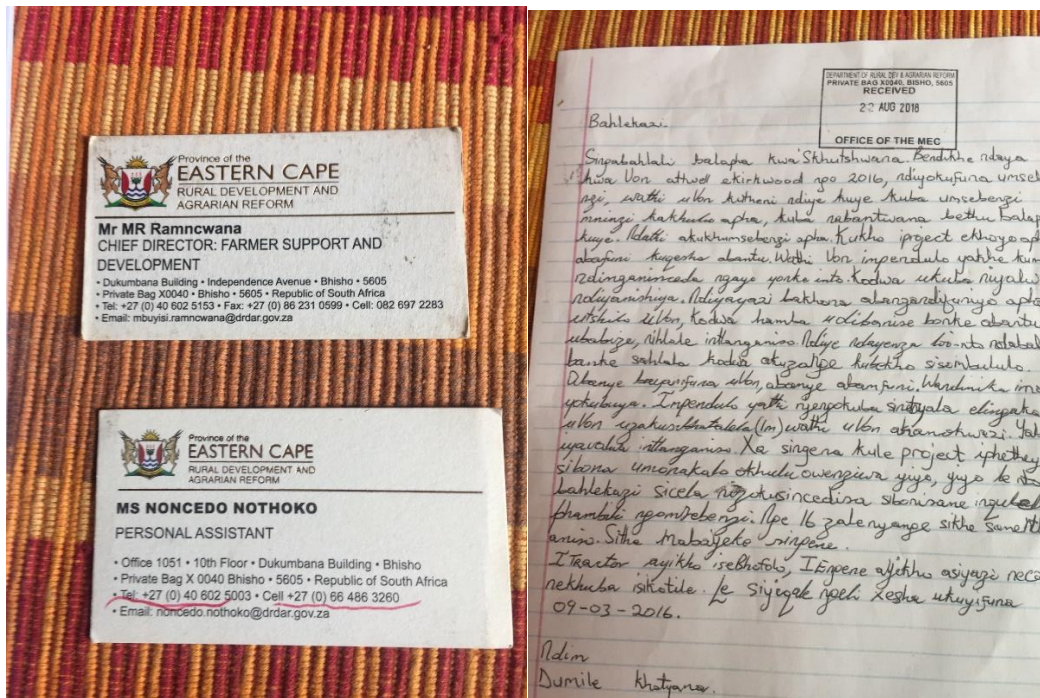 Province of the
EASTERN CAPE
RURAL DEVELOPMENT AND
AGRARIAN REFORM
Mr MR Ramncwana
CHIEF DIRECTOR: FARMER SUPPORT AND
DEVELOPMENT
• Dukumbana Building • Independence Avenue • Bhisho • 5605
• Private Bag X0040 • Bhisho • 5605 • Republic of South Africa
• Tel: +27 (0) 40 602 5153 • Fax: +27 (0) 86 231 0599 • Cell: 082 697 2283
• Email: mbuyisi.ramncwana@drdar.gov.za
Province of the
EASTERN CAPE
RURAL DEVELOPMENT AND
AGRARIAN REFORM
MS NONCEDO NOTHOKO
PERSONAL ASSISTANT
• Office 1051 • 10th Floor • Dukumbana Building • Bhisho
• Private Bag X 0040 Bhisho • 5605 • Republic of South Africa
• Tel: +27 (0) 40 602 5003 • Cell +27 (0) 66 486 3260
• Email: noncedo.nothoko@drdar.gov.za
DEPARTMENT OF RURAL DEV & AGRARIAN REFORM
PRIVATE BAG X0040, BISHO, 5605
RECEIVED
22 AUG 2018
OFFICE OF THE MEC
Bahlekazi.
Singabahlali balapha kwa Skhutshwana. Bendikhe ndaya
kwa Von ekirkwood ngo 2016, ndiyokufuna
nzi, wathi uVon kutheni ndiye kuye kuba umsebenzi
mninzi kakhulu apha, kuba nabantwana bethu
kuye. Ndathi akukhomsebenzi apha. Kukho project ekhoyo
abafuni kuqesha abantu. Wathi Von impendulo yakhe
ndinganinceda ngayo yonke into. Kodwa ukuba niyalwa
ndiyanishiya. Ndiyayazi bakhona abangandifuniyo
utshilo uVon, Kodwa hamba udibanise bonke abantu
ubabize, nihlale intlanganiso. Ndiye ndayenza loo-nto
banke sahlala kodwa akuzange kubekho sisombululo.
Abanye bayamfuna uVon, abanye abamfuni. Wandinika
yokubuya. Impendulo yathi njengokuba sinetyala
uVon wathi uVon akanakwazi.
iyavalwa intlanganiso. Xa singena kule project
sibona umonakalo okhulu owenziwa yiyo, yiyo le nto
bahlekazi sicela nizokusincedisa sibonisane
phambili ngomsebenzi. Nge 16 zalenyanga sikhe
aniso. Sithe Mabayeke singene.
ITractor ayikho iseBhofolo, IEngene ayikho asiyazi
nekhuba isketile. Le siyigqale ngeli xesha ukuyifuna
09-03-2016.
Ndim
Dumile Khatyana.